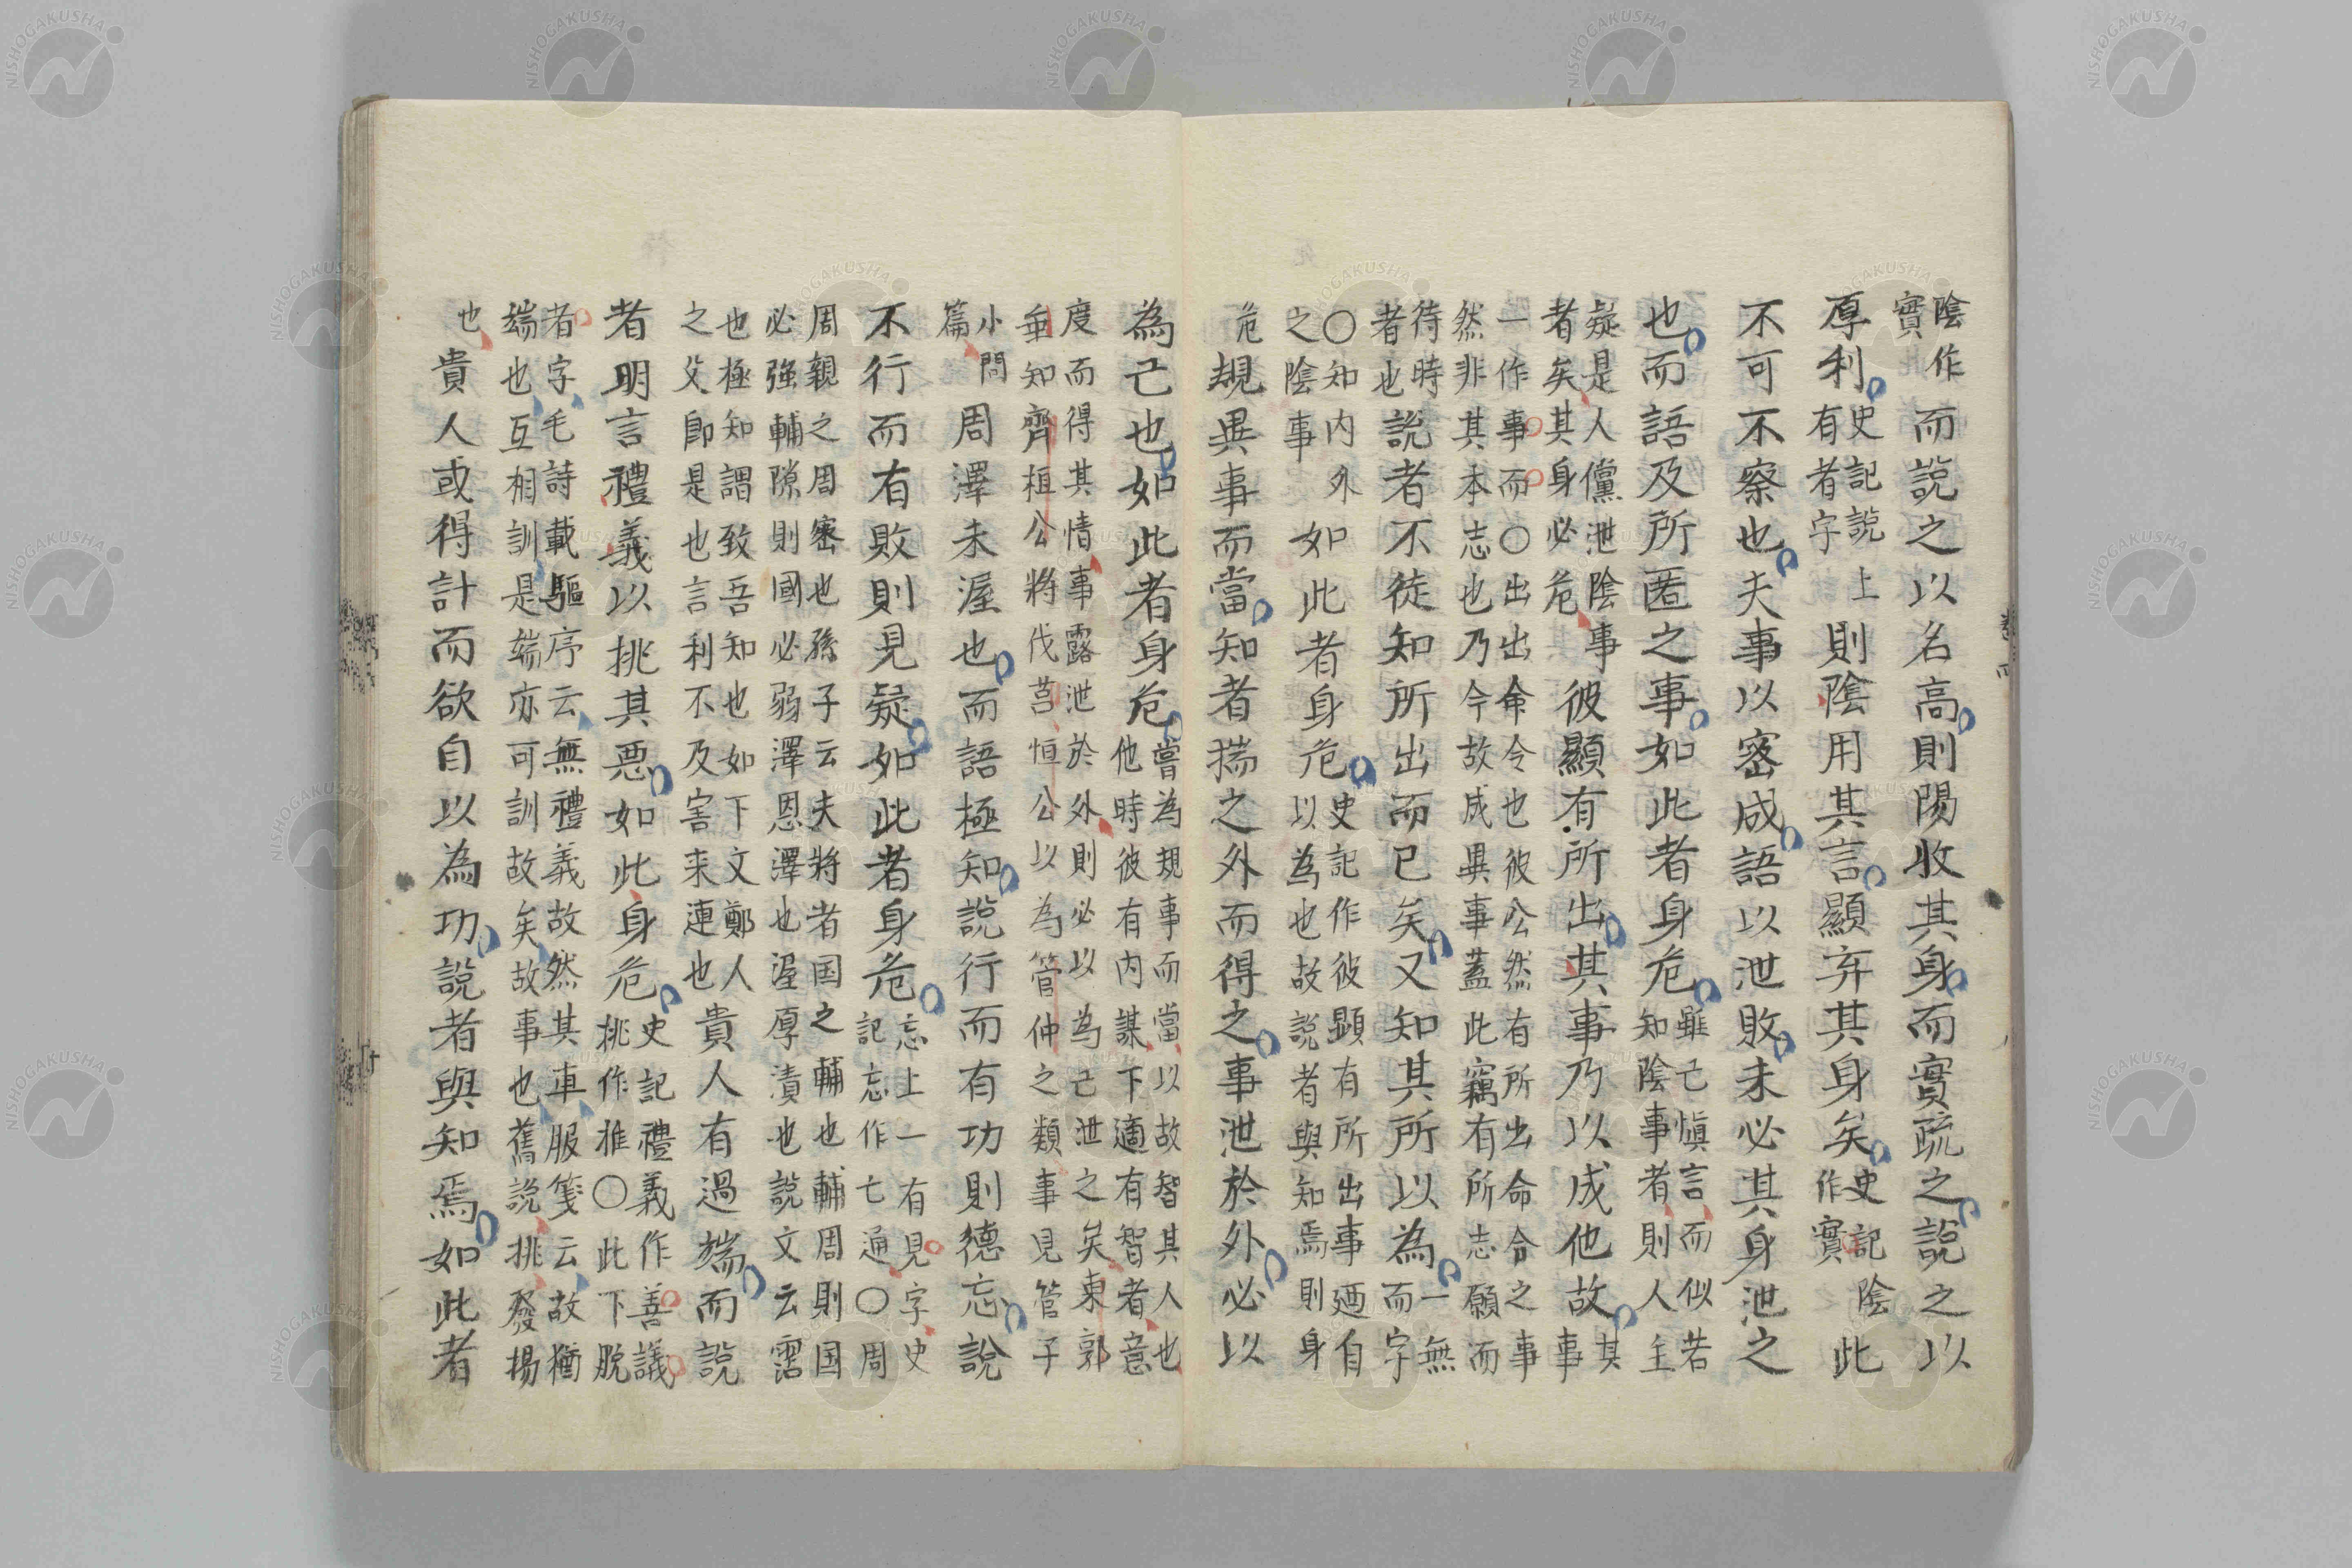 陰作
實
而說之以名高則陽收其身而實疏之說之以
厚利
史記說上
有者字
則陰用其言顯弃其身矣
史記陰
作實
此
不可不察也夫事以密成語以泄敗未必其身泄之
也而語及所匿之事如此者身危
雖己慎言而似若
知陰事者則人主
疑是人儻泄陰事
者矣其身必危
彼顯有所出其事乃以成他故
其
事
一作事而〇出出命令也彼公然有所出命令之事
然非其本志也乃今故成異事蓋此竊有所志願而
待時
者也
說者不徒知所出而已矣又知其所以為
一無
而字
〇知內外
之陰事
如此者身危
史記作彼顕有所出事廼自
以為也故說者與知焉則身
危
規異事而當知者揣之外而得之事泄於外必以
為己也如此者身危
嘗為規事而當以故智其人也
他時彼有內謀下適有智者意
度而得其情事露泄於外則必以為己泄之矣東郭
垂知齊桓公將伐莒恒公以為管仲之類事見管子
小問
篇
周澤未渥也而語極知說行而有功則德忘說
不行而有敗則見疑如此者身危
忘上一有見字史
記忘作亡通〇周
周親之周密也孫子云夫將者国之輔也輔周則国
必強輔隙則國必弱澤恩澤也渥厚漬也說文云霑
也極知謂致吾知也如下文鄭人
之父即是也言利不及害来連也
貴人有過端而說
者明言禮義以挑其惡如此身危
史記禮義作善議
挑作推〇此下脫
者字毛詩載驅序云無禮義故然其車服箋云故猶
端也互相訓是端亦可訓故矣故事也舊說挑發揚
也
貴人或得計而欲自以為功說者與知焉如此者
NISHOGAKUSHA